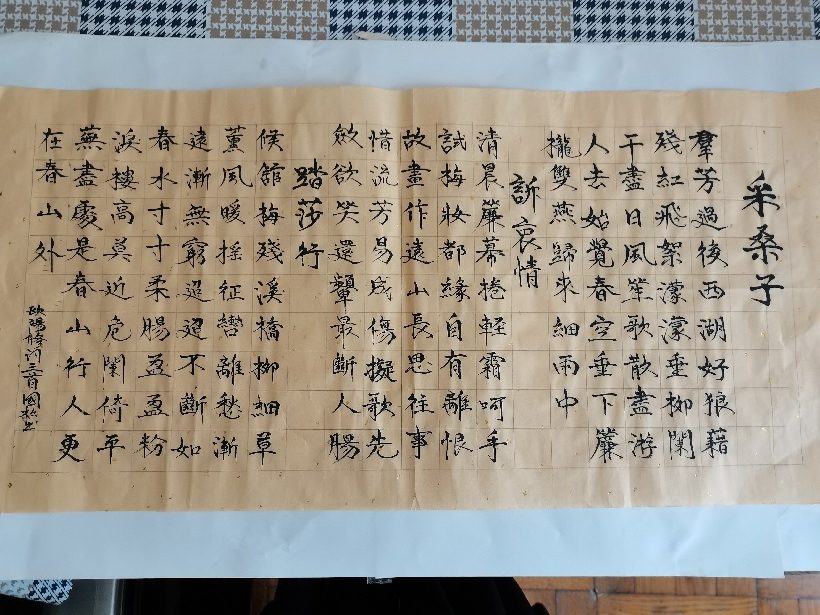 采桑子
羣芳過後西湖好狼藉
殘紅飛絮濛濛垂柳闌
干盡日風笙歌散盡游
人去始覺春空垂下簾
攏雙燕歸來細雨中
訴衷情
清晨簾幕捲輕霜呵手
試梅妝都緣自有離恨
故畫作遠山長思往事
惜流芳易成傷擬歌先
斂欲笑還顰最斷人腸
踏莎行
候館梅殘溪橋柳細草
薰風暖搖征轡離愁漸
遠漸無窮迢迢不斷如
春水寸寸柔腸盈盈粉
淚樓高莫近危闌倚平
蕪盡處是春山行人更
在春山外
歐陽修詞三首國